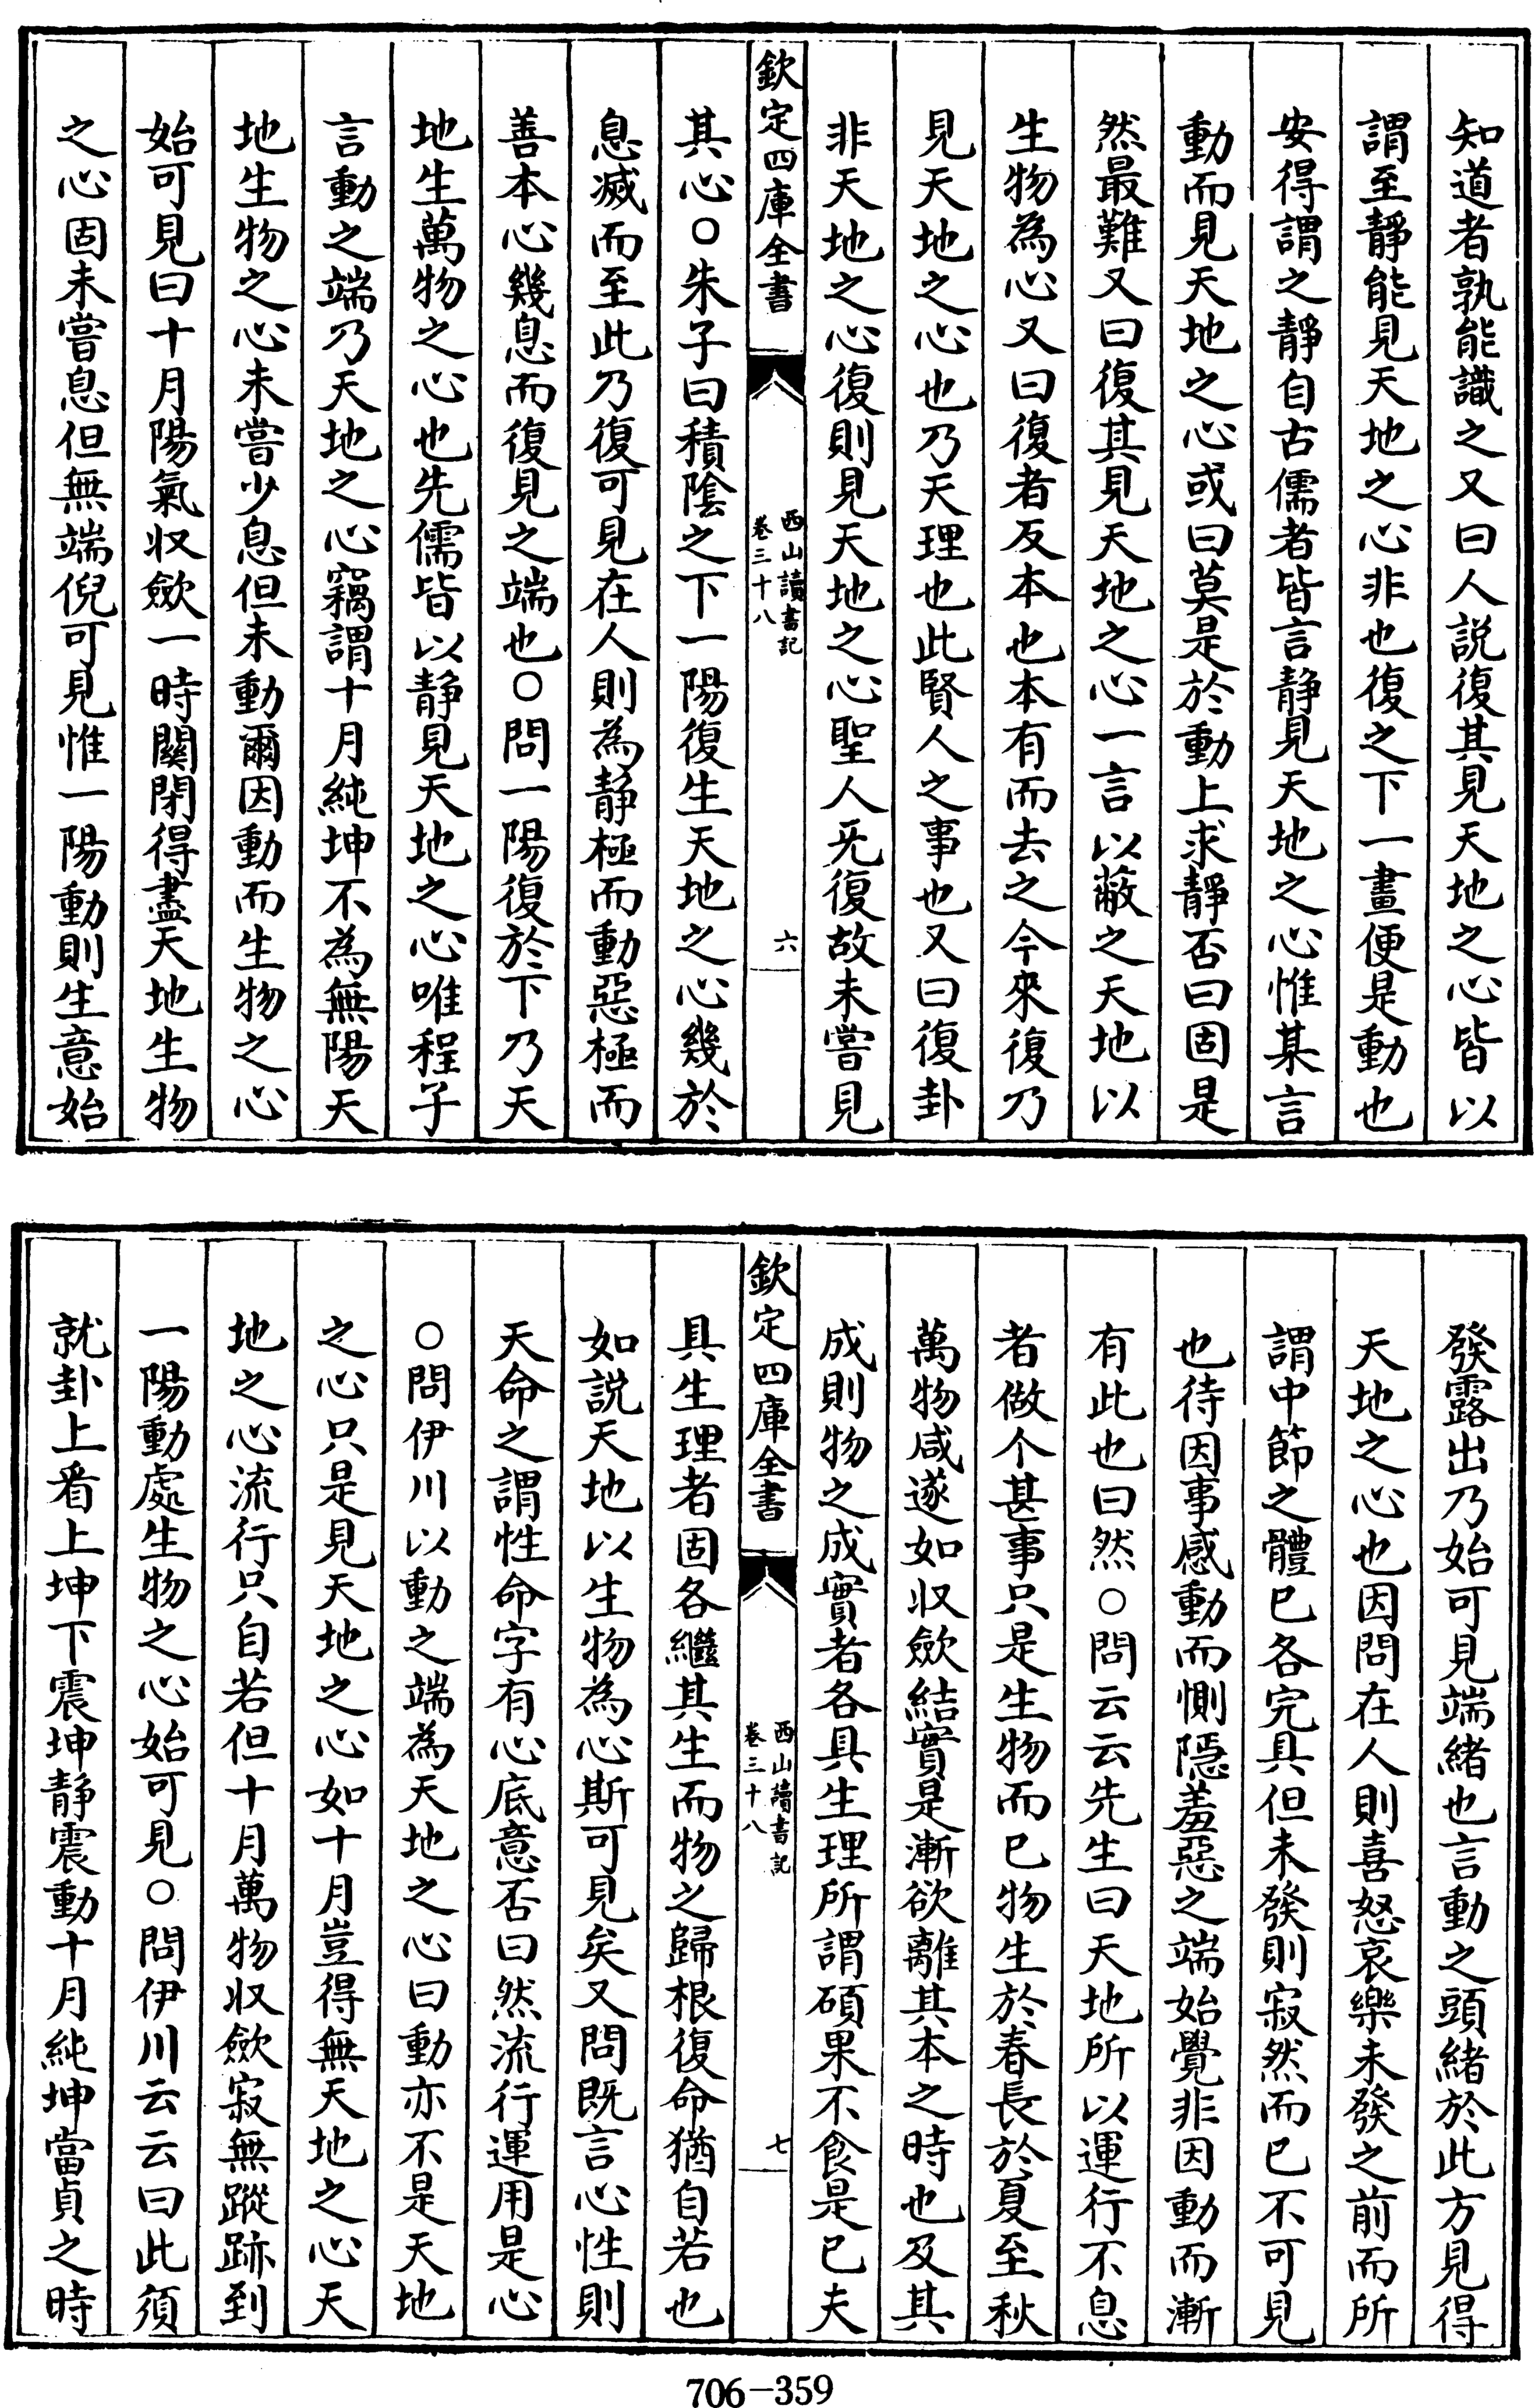 知道者孰能識之又曰人説復其見天地之心皆以
謂至靜能見天地之心非也復之下一畫便是動也
安得謂之靜自古儒者皆言静見天地之心惟某言
動而見天地之心或曰莫是於動上求靜否曰固是
然最難又曰復其見天地之心一言以蔽之天地以
生物為心又曰復者反本也本有而去之今來復乃
見天地之心也乃天理也此賢人之事也又曰復卦
非天地之心復則見天地之心聖人无復故未嘗見
欽定四庫全書
西山讀書記
卷三十八
六
其心○朱子曰積陰之下一陽復生天地之心幾於
息滅而至此乃復可見在人則為静極而動惡極而
善本心幾息而復見之端也○問一陽復於下乃天
地生萬物之心也先儒皆以静見天地之心唯程子
言動之端乃天地之心竊謂十月純坤不為無陽天
地生物之心未嘗少息但未動爾因動而生物之心
始可見曰十月陽氣収歛一時關閉得盡天地生物
之心固未嘗息但無端倪可見惟一陽動則生意始
發露出乃始可見端緒也言動之頭緒於此方見得
天地之心也因問在人則喜怒哀樂未發之前而所
謂中節之體已各完具但未發則寂然而已不可見
也待因事感動而惻隠羞惡之端始覺非因動而漸
有此也曰然○問云云先生曰天地所以運行不息
者做个甚事只是生物而已物生於春長於夏至秋
萬物咸遂如収歛結實是漸欲離其本之時也及其
成則物之成實者各具生理所謂碩果不食是已夫
欽定四庫全書
西山讀書記
卷三十八
七
具生理者固各繼其生而物之歸根復命猶自若也
如説天地以生物為心斯可見矣又問既言心性則
天命之謂性命字有心底意否曰然流行運用是心
○問伊川以動之端為天地之心曰動亦不是天地
之心只是見天地之心如十月豈得無天地之心天
地之心流行只自若但十月萬物収歛寂無蹤跡到
一陽動處生物之心始可見○問伊川云云曰此須
就卦上看上坤下震坤静震動十月純坤當貞之時
706-359